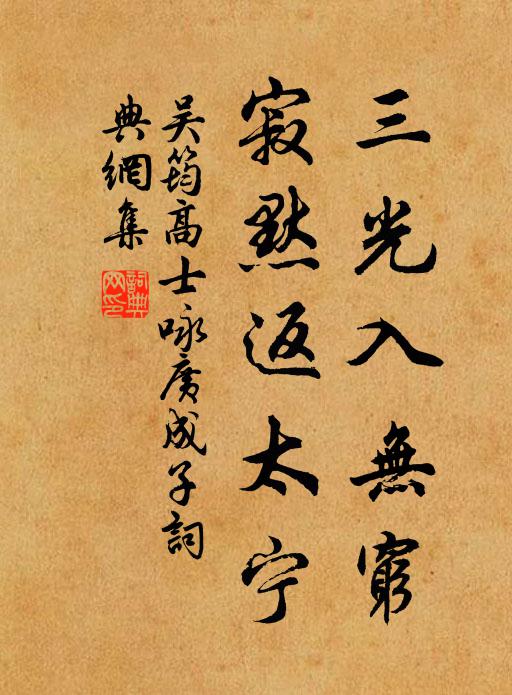 三光入無窮
寂默返太宁
吴筠高士咏廣成子詞
典網集
詞典网印